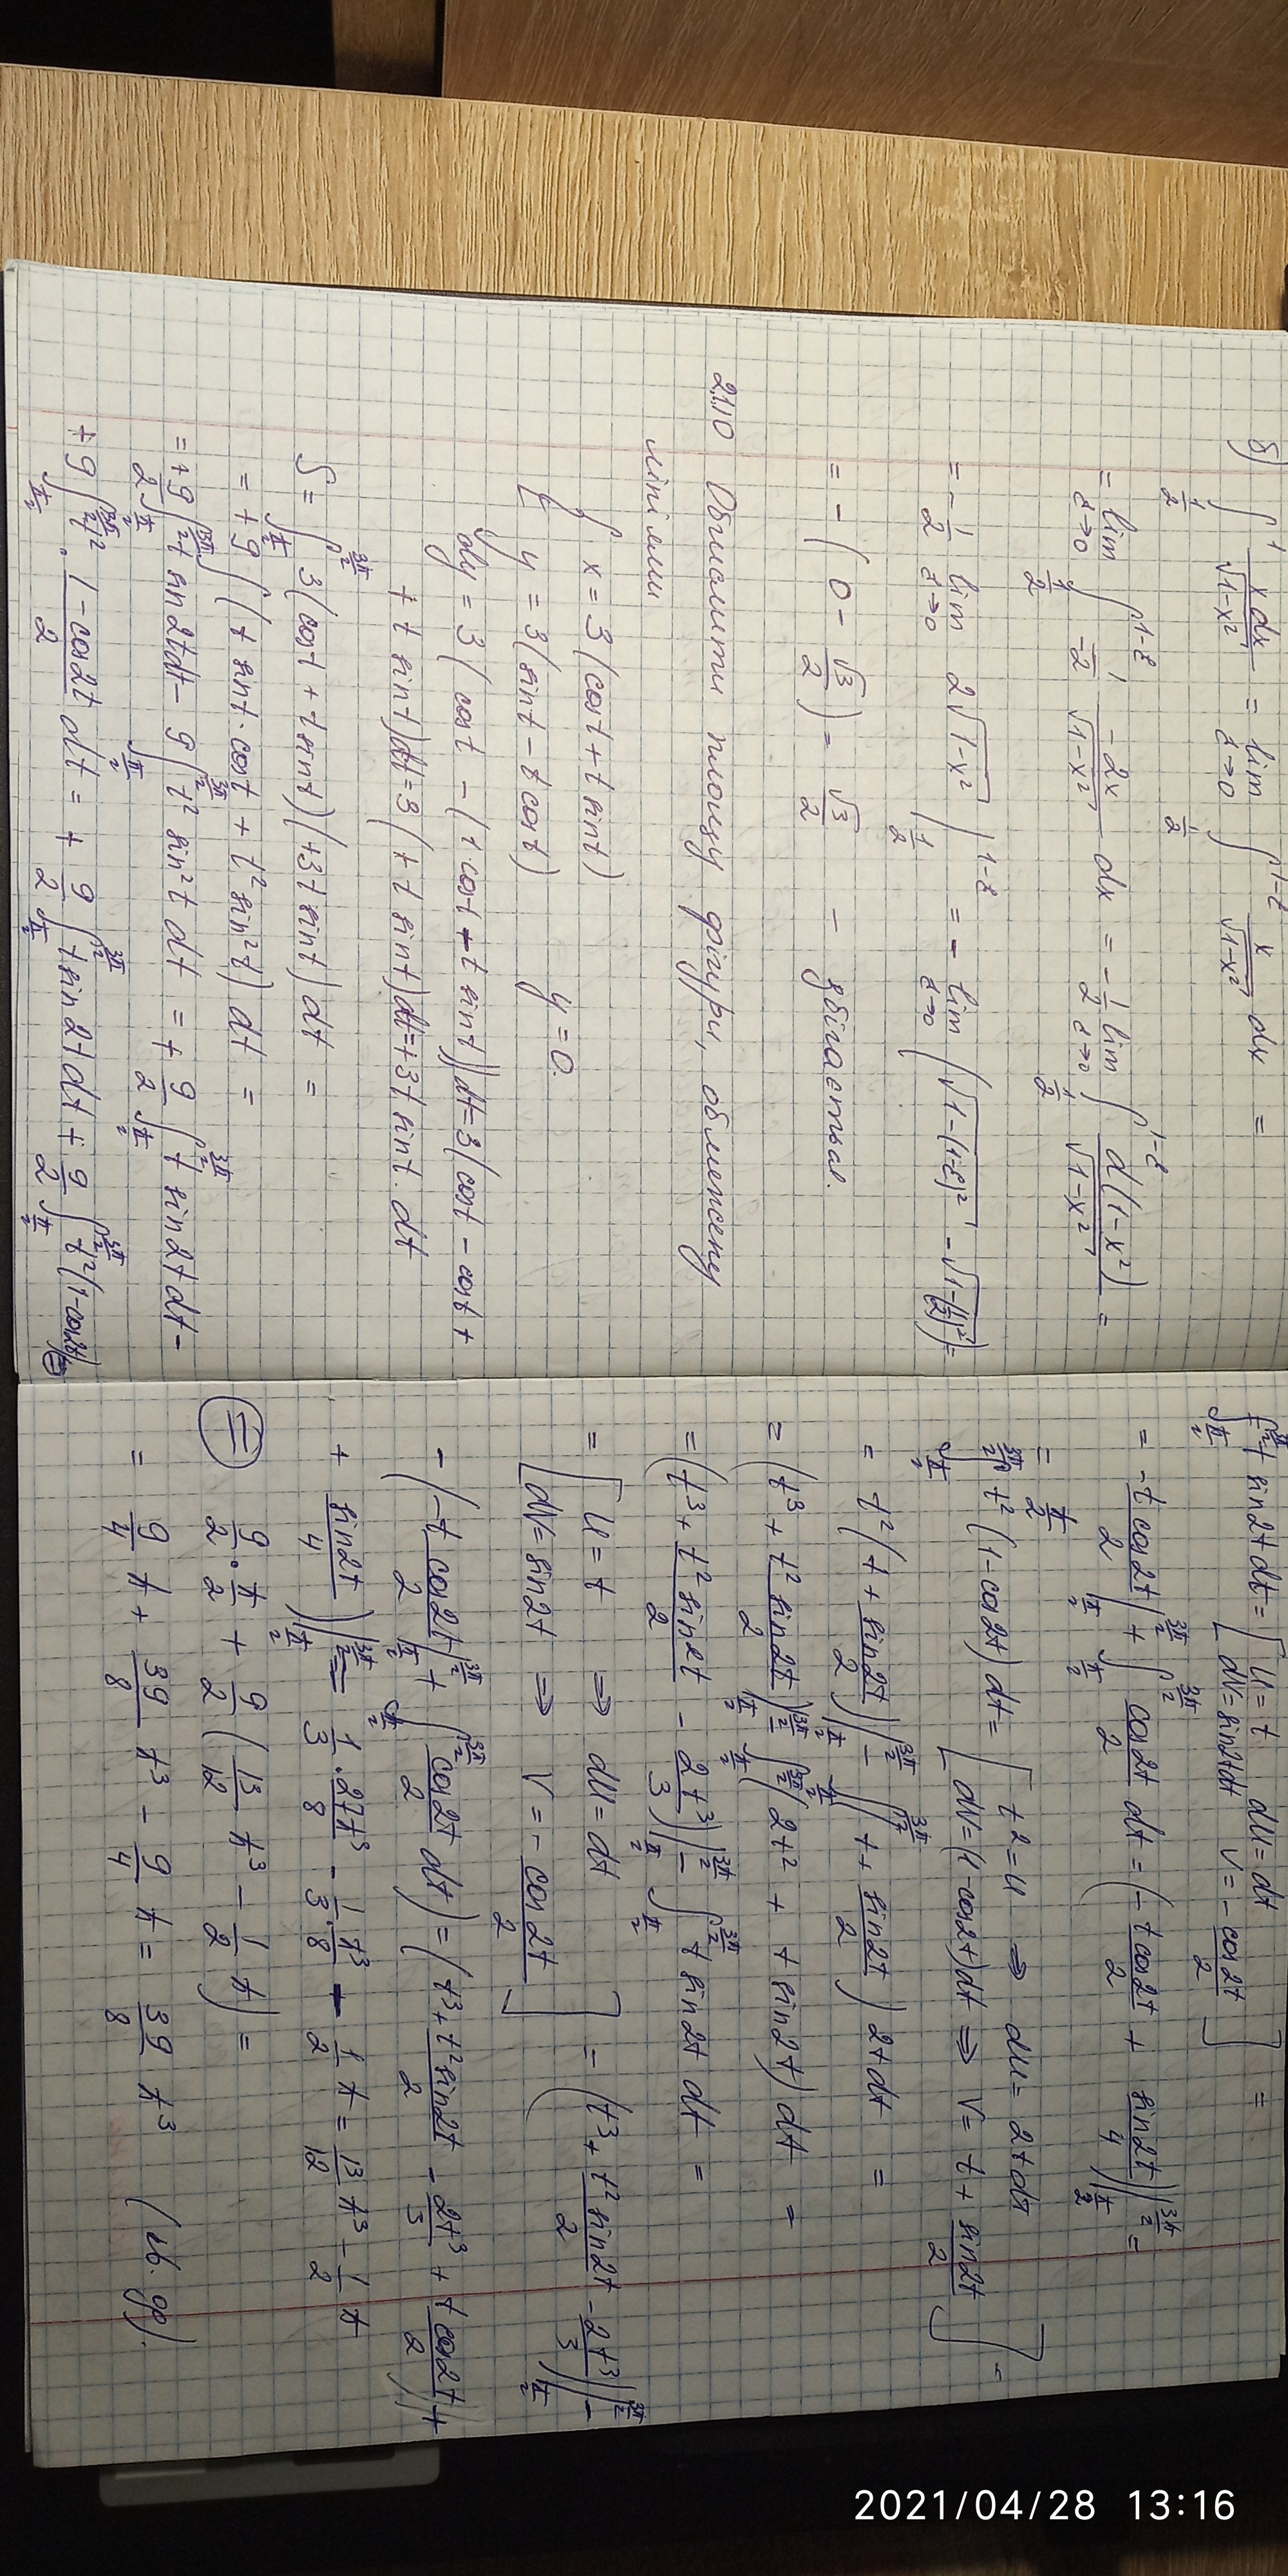 б) ∫_{1/2}^{1} xdx/√(1-x²) = lim_{ε→0} ∫_{1/2}^{1-ε} x/√(1-x²) dx =
= lim_{ε→0} ∫_{1/2}^{1-ε} -1/2 · -2x/√(1-x²) dx = -1/2 lim_{ε→0} ∫_{1/2}^{1-ε} d(1-x²)/√(1-x²) =
= -1/2 lim_{ε→0} 2√(1-x²) |_{1/2}^{1-ε} = - lim_{ε→0} (√(1-(1-ε)²) - √(1-(1/2)²)) =
= - (0 - √3/2) = √3/2 - збігається.
2.1.10 Обчислити площу фігури, обмежену
лініями
{ x = 3(cost + t sint)
{ y = 3(sint - t cost) y = 0.
dy = 3(cost - (1·cost - t sint))dt = 3(cost - cost +
+ t sint)dt = 3(+ t sint)dt = +3t sint·dt
S = ∫_{π/2}^{3π/2} 3(cost + t sint)(+3t sint)dt =
= +9 ∫ (t sint·cost + t² sin²t) dt =
= +9/2 ∫_{π/2}^{3π/2} t sin2tdt - 9 ∫_{π/2}^{3π/2} t² sin²t dt = + 9/2 ∫_{π/2}^{3π/2} t sin2tdt -
+ 9 ∫_{π/2}^{3π/2} t² · (1-cos2t)/2 dt = + 9/2 ∫_{π/2}^{3π/2} t sin2tdt + 9/2 ∫_{π/2}^{3π/2} t²(1-cos2t) ⊜
∫_{π/2}^{3π/2} t sin2tdt = [U = t dU = dt dV = sin2tdt V = - cos2t/2] =
= - t cos2t/2 |_{π/2}^{3π/2} + ∫_{π/2}^{3π/2} cos2t/2 dt = (- t cos2t/2 + sin2t/4)|_{π/2}^{3π/2} =
= π/2
∫_{π/2}^{3π/2} t² (1-cos2t) dt = [t² = u ⇒ du = 2tdt dV = (1-cos2t)dt ⇒ V = t + sin2t/2] =
= t² (t + sin2t/2)|_{π/2}^{3π/2} - ∫_{π/2}^{3π/2} (t + sin2t/2) 2tdt =
= (t³ + t² sin2t/2)|_{π/2}^{3π/2} - ∫_{π/2}^{3π/2} (2t² + t sin2t) dt =
= (t³ + t² sin2t/2 - 2t³/3)|_{π/2}^{3π/2} - ∫_{π/2}^{3π/2} t sin2t dt =
= [U = t ⇒ dU = dt dV = sin2t ⇒ V = - cos2t/2] = (t³ + t² sin2t/2 - 2t³/3)|_{π/2}^{3π/2} -
- (- t cos2t/2 |_{π/2}^{3π/2} + ∫_{π/2}^{3π/2} cos2t/2 dt) = (t³ + t² sin2t/2 - 2t³/3 + t cos2t/2 +
+ sin2t/4)|_{π/2}^{3π/2} = 1/3 · 27π³/8 - 1/3 · π³/8 - 1/2 π = 13/12 π³ - 1/2 π
⊜ 9/2 · π/2 + 9/2 (13/12 π³ - 1/2 π) =
= 9/4 π + 39/8 π³ - 9/4 π = 39/8 π³ (кв. од).
2021/04/28 13:16